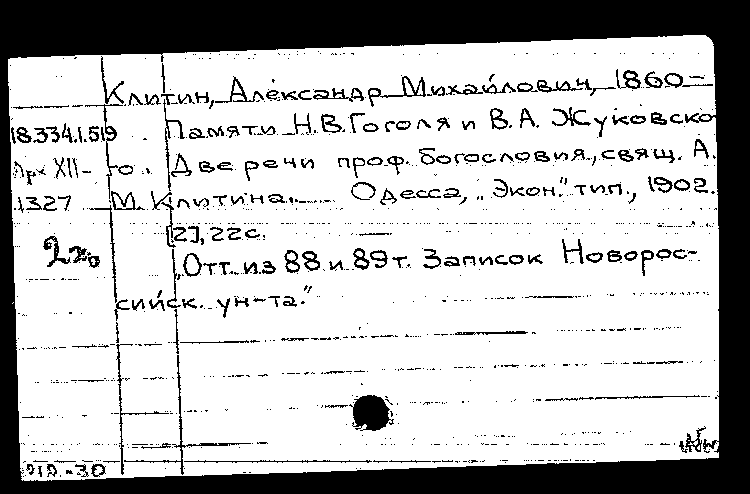 Клитин, Александр Михайлович, 1860-
18.334.1.519 Памяти Н.В.Гоголя и В.А. Жуковско-
Арх XII- го. Две речи проф. богословия, свящ. А.
1327 М. Клитина. Одесса, „Экон." тип., 1902.
[2], 22с.
2хо
„Отт. из 88 и 89т. Записок Новорос-
сийск. ун-та."